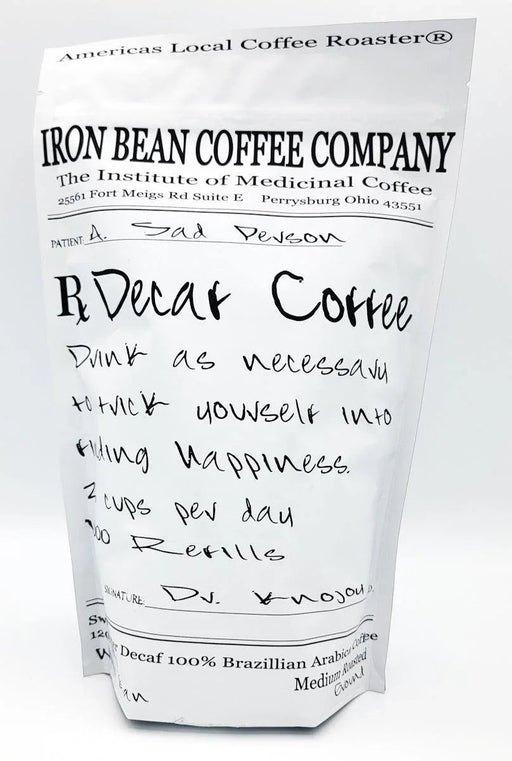 Americas Local Coffee Roaster®
IRON BEAN COFFEE COMPANY
The Institute of Medicinal Coffee
25561 Fort Meigs Rd Suite E Perrysburg Ohio 43551
PATIENT: A. Sad Person
Rx Decaf Coffee
Drink as necessary
to trick yourself into
finding happiness.
2 cups per day
Refills
SIGNATURE Dr.
Sw
Decaf 100% Brazillian Arabica Coffee
Medium Roasted
Ground